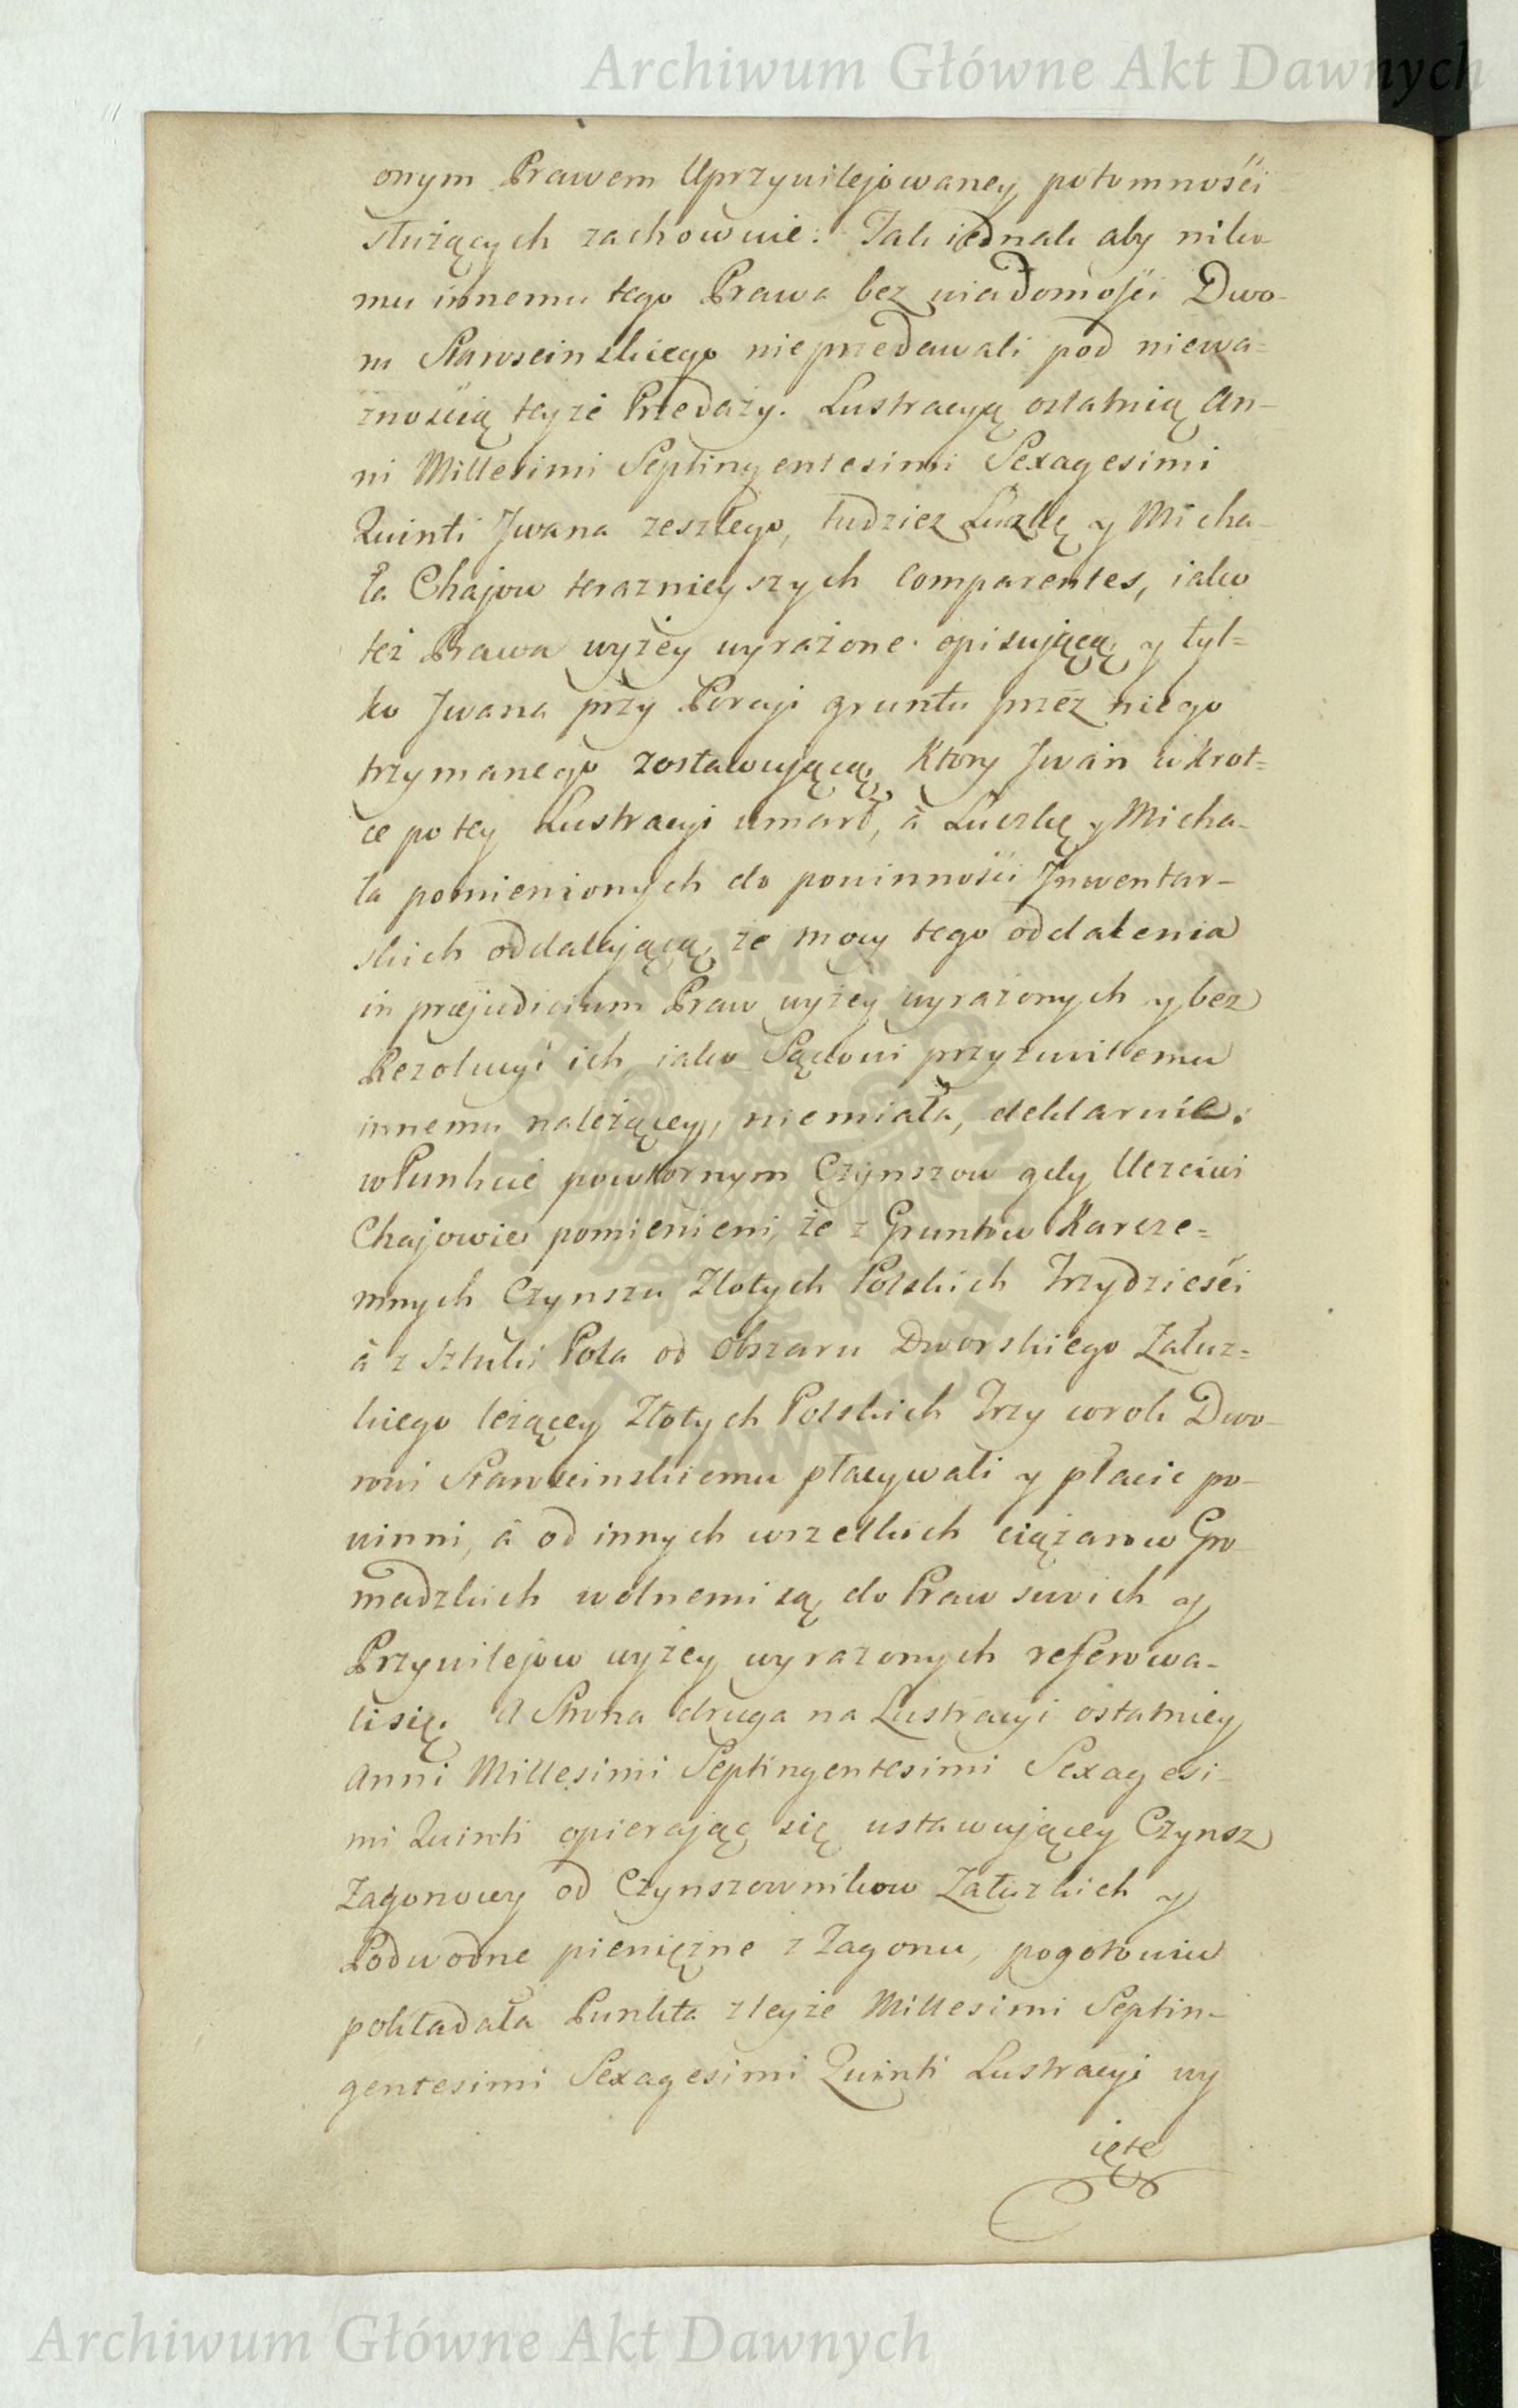 Archiwum Główne Akt Dawnych
onym Prawem Uprzywilejowaney potomności
służących zachowuie: Tak iednak aby niko-
mu innemu tego Prawa bez wiadomości Dwo-
ru Stawseinskiego nieprzedawali pod niewa=
żnością teyże Przedaży. Lustracyą ostatnią An-
ni Millesimi Septingentesimi Sexagesimi
Quinti Jwana zeszłego, tudziez Luczkę y Micha-
ła Chajow teraznieyszych comparentes, iako
też Prawa wyżey wyrażone opisującą y tyl=
ko Jwana przy Porcyi gruntu przez niego
trzymanego zostawującą, Ktory Jwan wkrot=
ce po tey Lustracyi umarł, à Luczkę y Micha-
ła pomienionych do powinności Jnwentar-
skich oddalającą, że mocy tego oddalenia
in præjudicium Praw wyżey wyrażonych y bez
Rezolucyi ich iako Sądowi przyzwitemu
innemu należącey, niemiała, deklaruie.
wPunkcie powtornym Czynszow gdy Uczciwi
Chajowie pomienieni, że z Gruntow Karcze=
mnych Czynszu Złotych Polskich Trzydzieści
à z Sztuki Pola od Obszaru Dworskiego Załuz=
kiego leżącey Złotych Polskich Trzy corok Dwo-
rowi Stawseinskiemu płacywali y płacic po-
winni, à od innych wszelkich ciężarow Gro-
madzkich wolnemi są, do Praw swoich y
Przywilejow wyżey wyrazonych referowa-
li się. A Strona druga na Lustracyi ostatniey
Anni Millesimi Septingentesimi Sexagesi-
mi Quinti opierając się ustawującey Czynsz
Zagonowy od Czynszownikow Załuzkich y
Podwodne pieniężne z Zagonu, pogotowiu
pokładała Punkta z teyże Millesimi Septin-
gentesimi Sexagesimi Quinti Lustracyi wy
ięte
Archiwum Główne Akt Dawnych